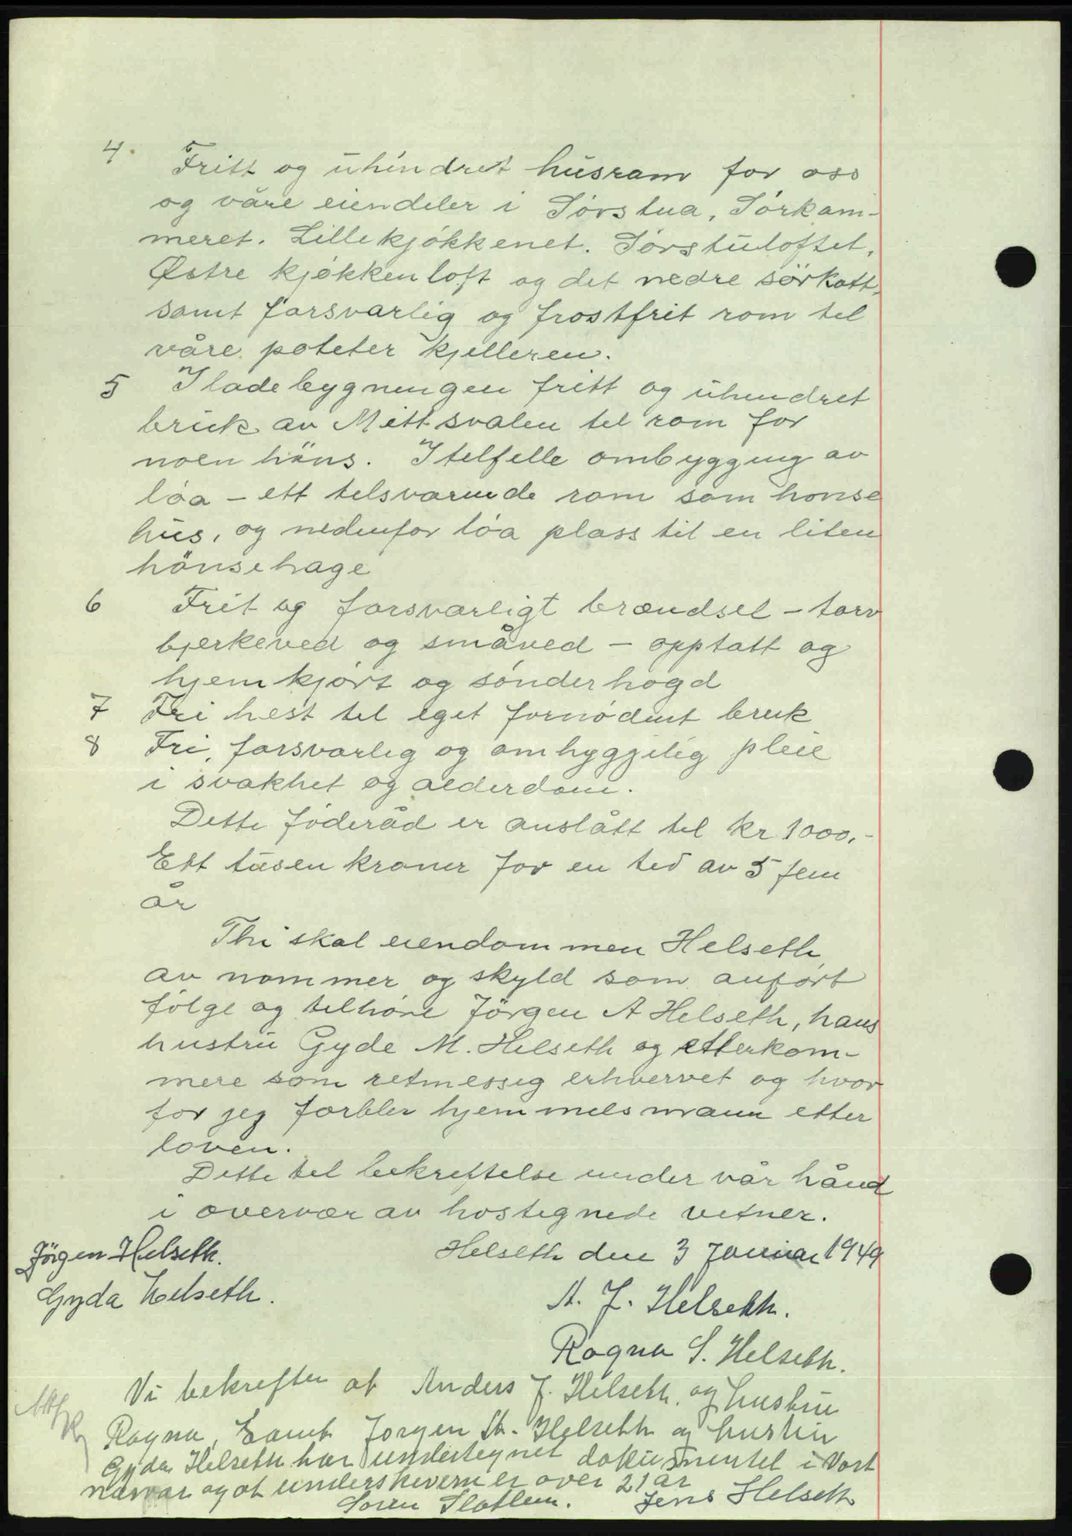 4. Fritt og uhindret husrom for oss
og våre eiendeler i Sørstua, Sørkam-
meret. Lillekjøkkenet. Sørstuloftet,
Østre kjøkkenloft og det nedre sörkott,
samt forsvarlig og frostfrit rom til
våre poteter kjelleren.
5 I ladebygningen fritt og uhindret
bruk av Mittsvalen til rom for
noen höns. I tilfelle ombygging av
løa - ett tilsvarende rom som honse
hus, og nedenfor løa plass til en liten
hönsehage
6 Frit og forsvarligt brændsel - torv
bjerkeved og småved - opptatt og
hjemkjørt og sönderhogd
7 Fri hest til eget fornødent bruk
8 Fri, forsvarlig og omhyggelig pleie
i svakhet og alderdom.
Dette föderåd er anslått til kr 1000,-
Ett tusen kroner for en tid av 5 fem
år
Thi skal eiendommen Helseth
av nommer og skyld som anført
følge og tilhøre Jörgen A Helseth, hans
hustru Gyde M. Helseth og etterkom-
mere som retmessig erhvervet og hvor
for jeg forblir hjemmelsmann etter
loven.
Dette til bekreftelse under vår hånd
i overvær av hostegnede vitner.
Helseth den 3 Januar 1949
Jörgen Helseth.
Gyda Helseth.
A. J. Helseth.
Ragna S. Helseth.
Vi bekrefter at Anders J. Helseth og hustru
Ragna, Samt Jorgen A. Helseth og hustru
Gyda Helseth har undertegnet dokumentet i Vort
nærvær og at underskriverne er over 21 år
Jens Helseth